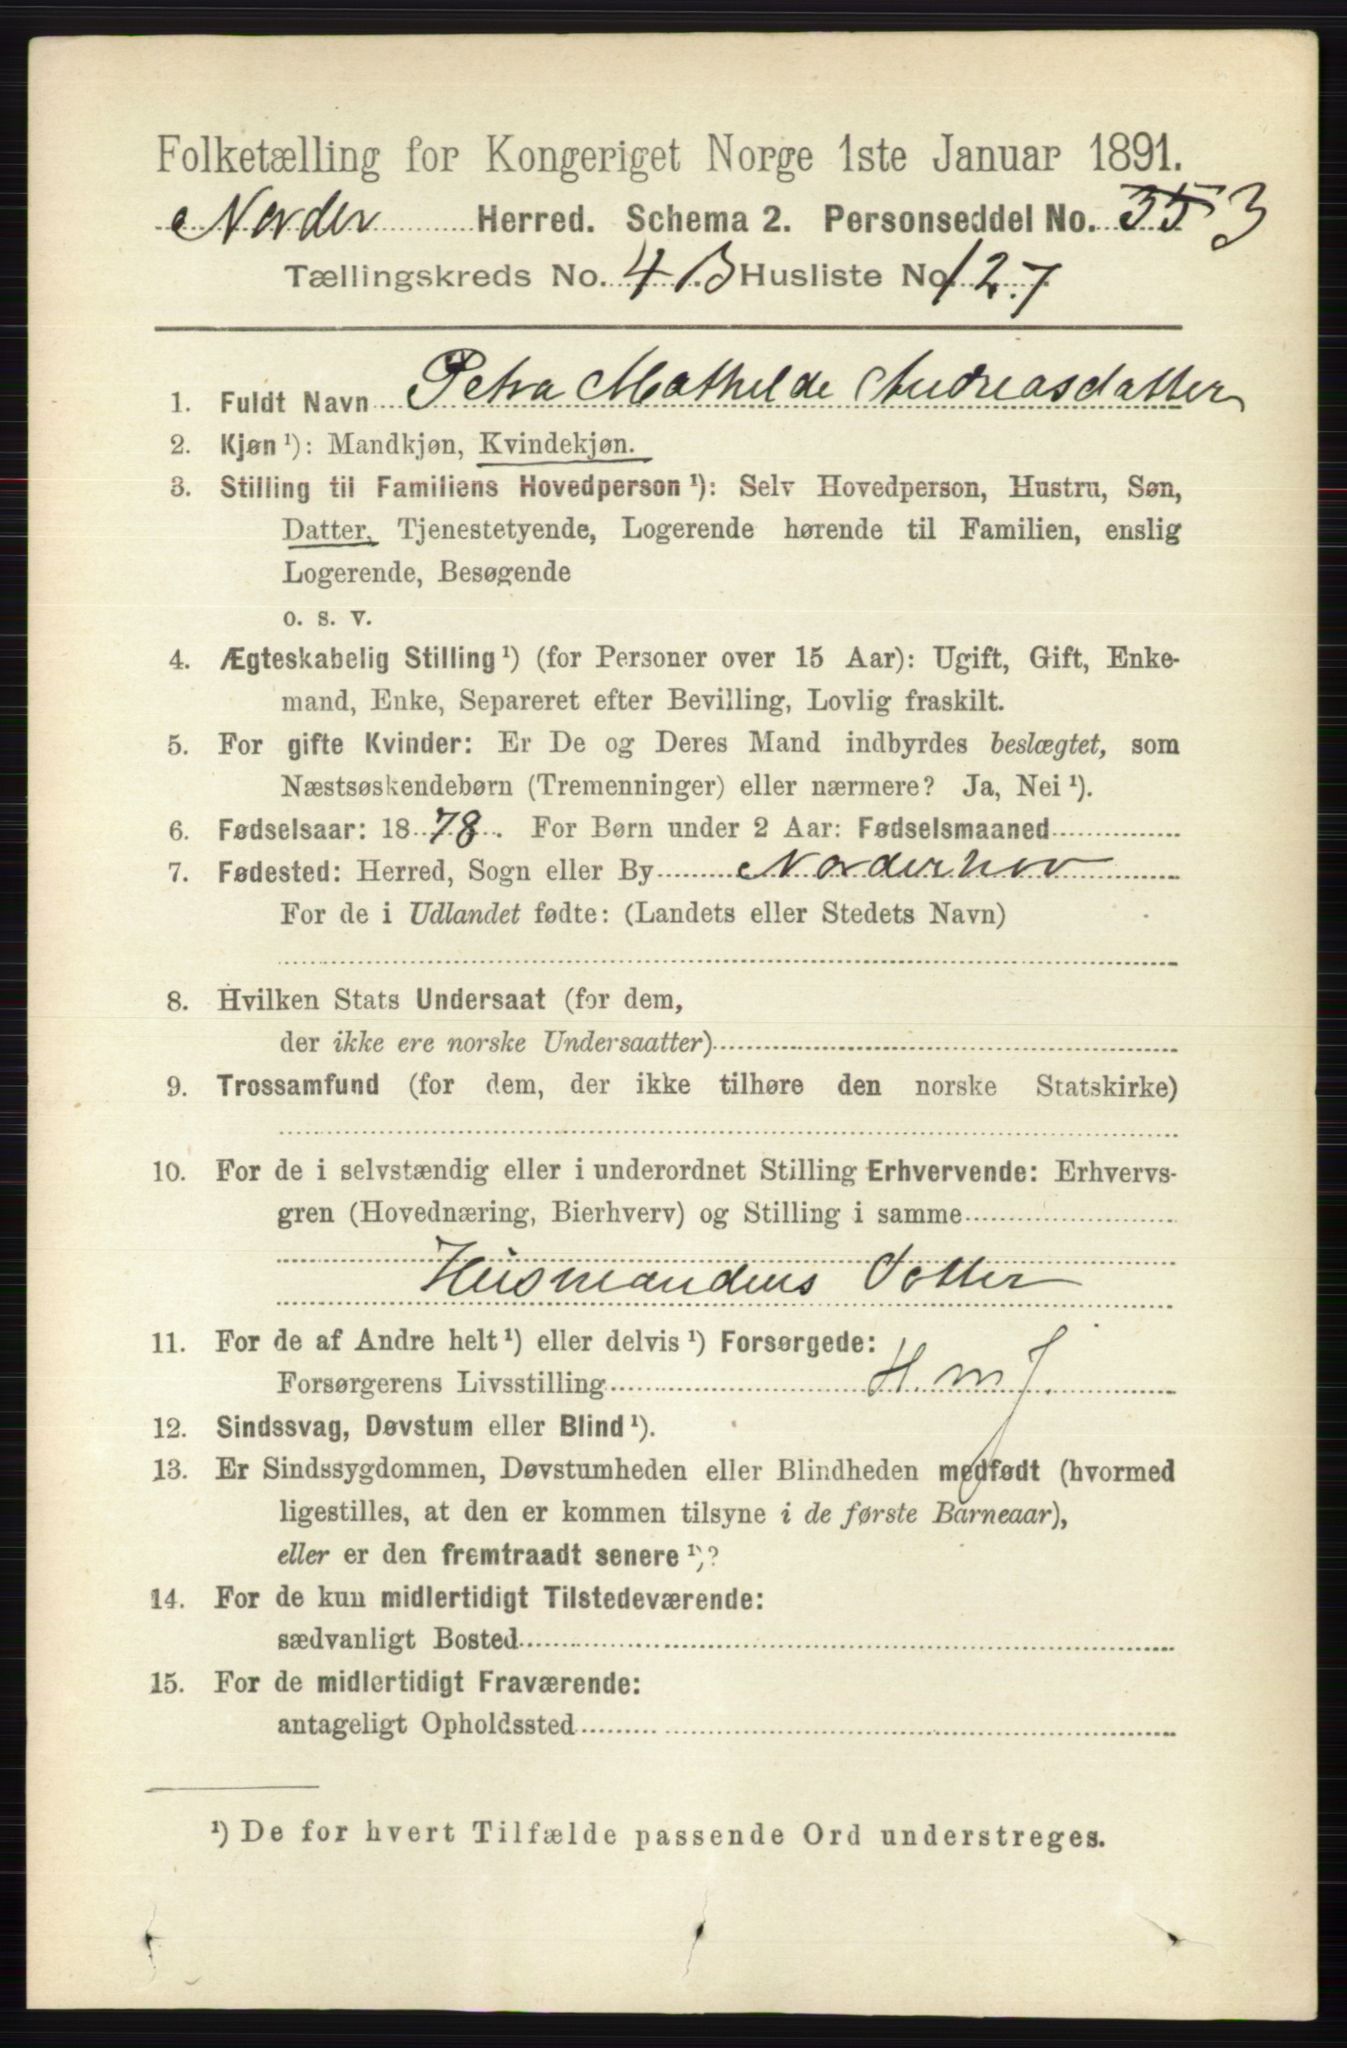 Folketælling for Kongeriget Norge 1ste Januar 1891.
Norder Herred. Schema 2. Personseddel No. 355 3
Tællingskreds No. 4 B Husliste No. 127
1. Fuldt Navn Petra Mathilde Andreasdatter
2. Kjøn ¹): Mandkjøn, Kvindekjøn.
3. Stilling til Familiens Hovedperson ¹): Selv Hovedperson, Hustru, Søn,
Datter, Tjenestetyende, Logerende hørende til Familien, enslig
Logerende, Besøgende
o. s. v.
4. Ægteskabelig Stilling ¹) (for Personer over 15 Aar): Ugift, Gift, Enke-
mand, Enke, Separeret efter Bevilling, Lovlig fraskilt.
5. For gifte Kvinder: Er De og Deres Mand indbyrdes beslægtet, som
Næstsøskendebørn (Tremenninger) eller nærmere? Ja, Nei ¹).
6. Fødselsaar: 1878. For Børn under 2 Aar: Fødselsmaaned
7. Fødested: Herred, Sogn eller By Norderhov
For de i Udlandet fødte: (Landets eller Stedets Navn)
8. Hvilken Stats Undersaat (for dem,
der ikke ere norske Undersaatter)
9. Trossamfund (for dem, der ikke tilhøre den norske Statskirke)
10. For de i selvstændig eller i underordnet Stilling Erhvervende: Erhvervs-
gren (Hovednæring, Bierhverv) og Stilling i samme
Husmandens Datter
11. For de af Andre helt ¹) eller delvis ¹) Forsørgede:
Forsørgerens Livsstilling H. m J.
12. Sindssvag, Døvstum eller Blind ¹).
13. Er Sindssygdommen, Døvstumheden eller Blindheden medfødt (hvormed
ligestilles, at den er kommen tilsyne i de første Barneaar),
eller er den fremtraadt senere ¹)?
14. For de kun midlertidigt Tilstedeværende:
sædvanligt Bosted
15. For de midlertidigt Fraværende:
antageligt Opholdssted
¹) De for hvert Tilfælde passende Ord understreges.